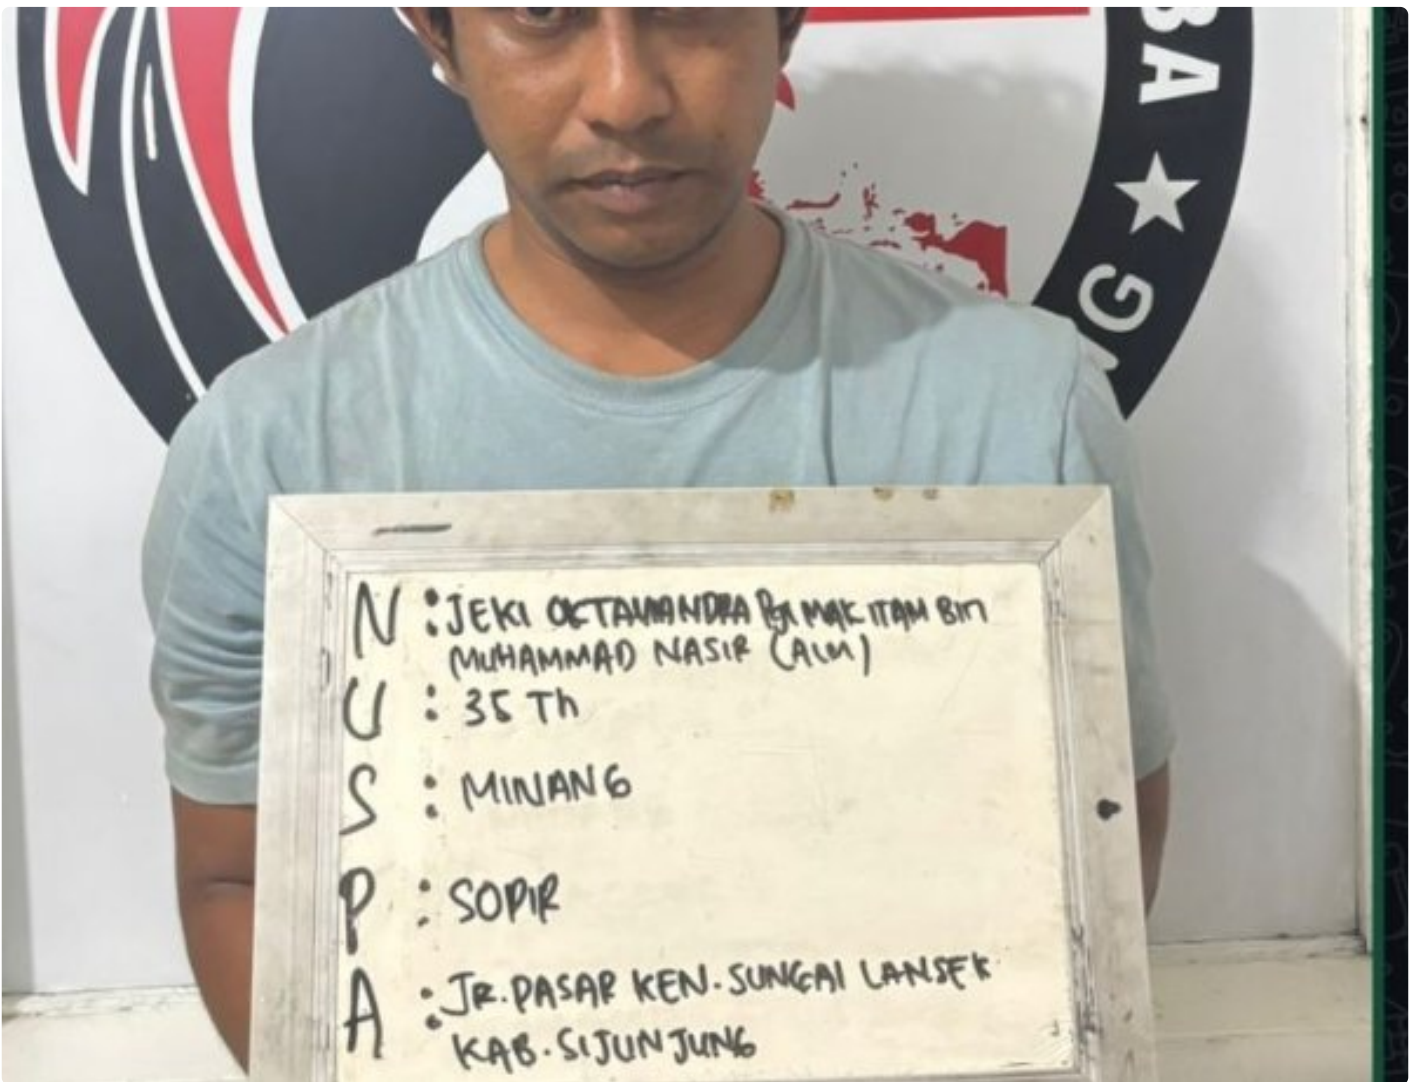 BA ★
NG
N : JEKI OKTAVIANDRA Pgl MAK ITAM BIN
MUHAMMAD NASIR (ALM)
U : 35 Th
S : MINANG
P : SOPIR
A : JR. PASAR KEN. SUNGAI LANSEK
KAB. SIJUNJUNG